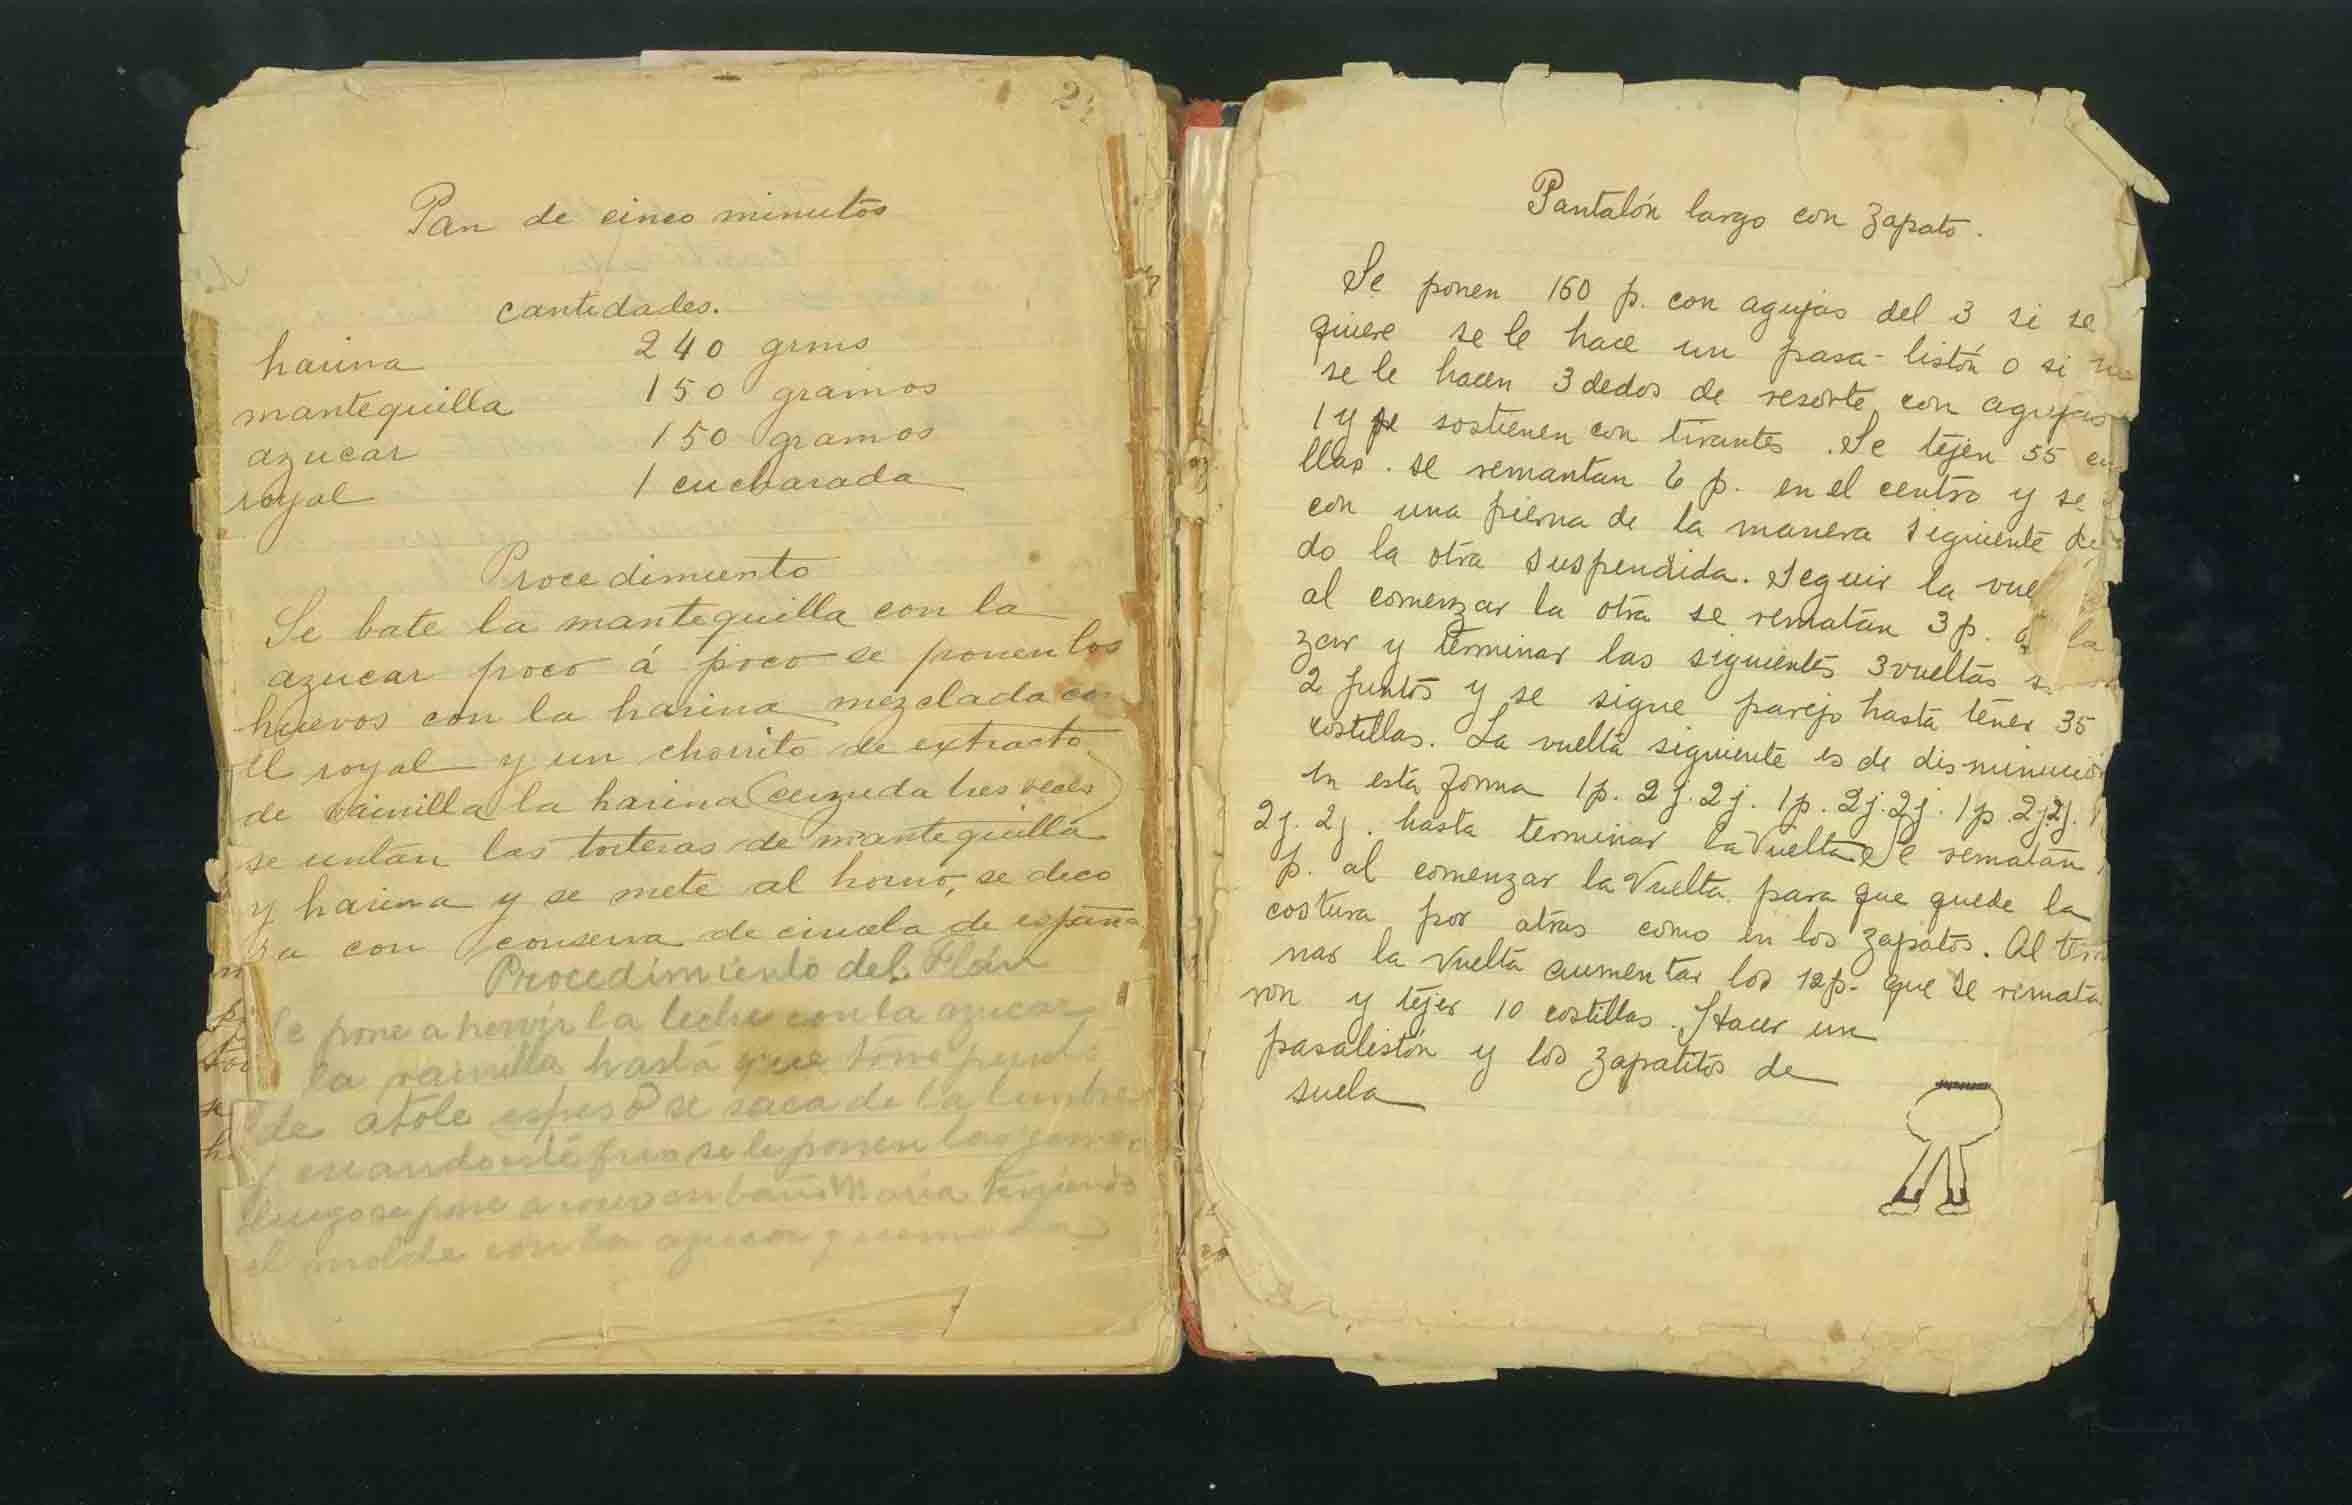 Pan de cinco minutos
cantidades.
harina 240 grms
mantequilla 150 gramos
azucar 150 gramos
royal 1 cucharada
Procedimiento
Se bate la mantequilla con la
azucar poco á poco se ponen los
huevos con la harina mezclada con
el royal y un chorrito de extracto
de vainilla la harina (cerzuda tres veces)
se untan las torteras de mantequilla
y harina y se mete al horno, se deco
ra con conserva de ciruela de españa
Procedimiento del Flán
Se pone a hervir la leche con la azucar
la vainilla hasta que tome punto
de atole espeso se saca de la lumbre
y cuando está frio se le ponen las yemas
luego se pone a cocer en baño Maria
el molde con la azucar quemada
Pantalón largo con zapato.
Se ponen 160 p. con agujas del 3 si se
quiere se le hace un pasa-listón o si no
se le hacen 3 dedos de resorte con agujas
1 y se sostienen con tirantes. Se tejen 55
llas. se remantan 6 p. en el centro y se
con una pierna de la manera siguiente
do la otra suspendida. Seguir la
al comenzar la otra se rematan 3 p. la
zar y terminar las siguientes 3 vueltas
2 puntos y se sigue parejo hasta tener 35
costillas. La vuelta siguiente es de disminución
en esta forma 1p. 2j. 2j. 1p. 2j. 2j. 1p. 2j. 2j.
2j. 2j. hasta terminar la vuelta Se rematan
p. al comenzar la Vuelta para que quede la
costura por atras como en los zapatos. Al
nar la vuelta aumentar los 12 p. que se remata
ron y tejer 10 costillas. Hacer un
pasalistón y los zapatitos de
suela